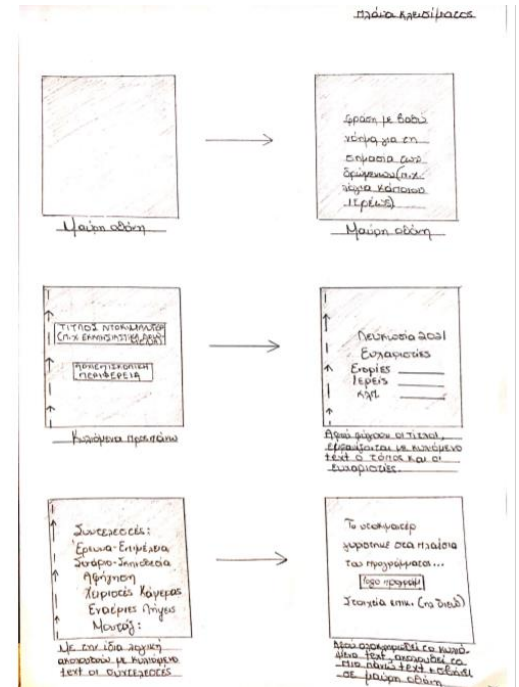 Πλάνα Κλεισίματος
Μαύρη οθόνη
φράση με βαθύ
νόημα για τη
σημασία των
δρώμενων (π.χ.
λόγια κάποιου
ιερέως)
Μαύρη οθόνη
ΤΙΤΛΟΣ ΝΤΟΚΙΜΑΝΤΕΡ
(Π.Χ ΕΚΚΛΗΣΙΑΣΤΙΚΑ
ΑΡΧΙΕΠΙΣΚΟΠΙΚΗ
ΠΕΡΙΦΕΡΕΙΑ
Κυλιόμενα προς τα πάνω
Λευκωσία 2021
Ευχαριστίες
Ενορίες
Ιερείς
κλπ.
Αφού φύγουν οι τίτλοι,
εμφανίζεται με κυλιόμενο
text ο τόπος και οι
ευχαριστίες.
Συντελεστές:
Έρευνα-Επιμέλεια
Σενάριο-Σκηνοθεσία
Αφήγηση
Χειριστές Κάμερας
Εναέριες Λήψεις
Μοντάζ:
Με την ίδια λογική
ακολουθούν με κυλιόμενο
text οι συντελεστές
Το ντοκιμαντέρ
γυρίστηκε στα πλαίσια
του προγράμματος...
λογο προγραμ
Στοιχεία επικ.
Αφού ολοκληρωθεί το κυλιό-
μενο text, ακολουθεί το
πιο πάνω text
σε μαύρη οθόνη